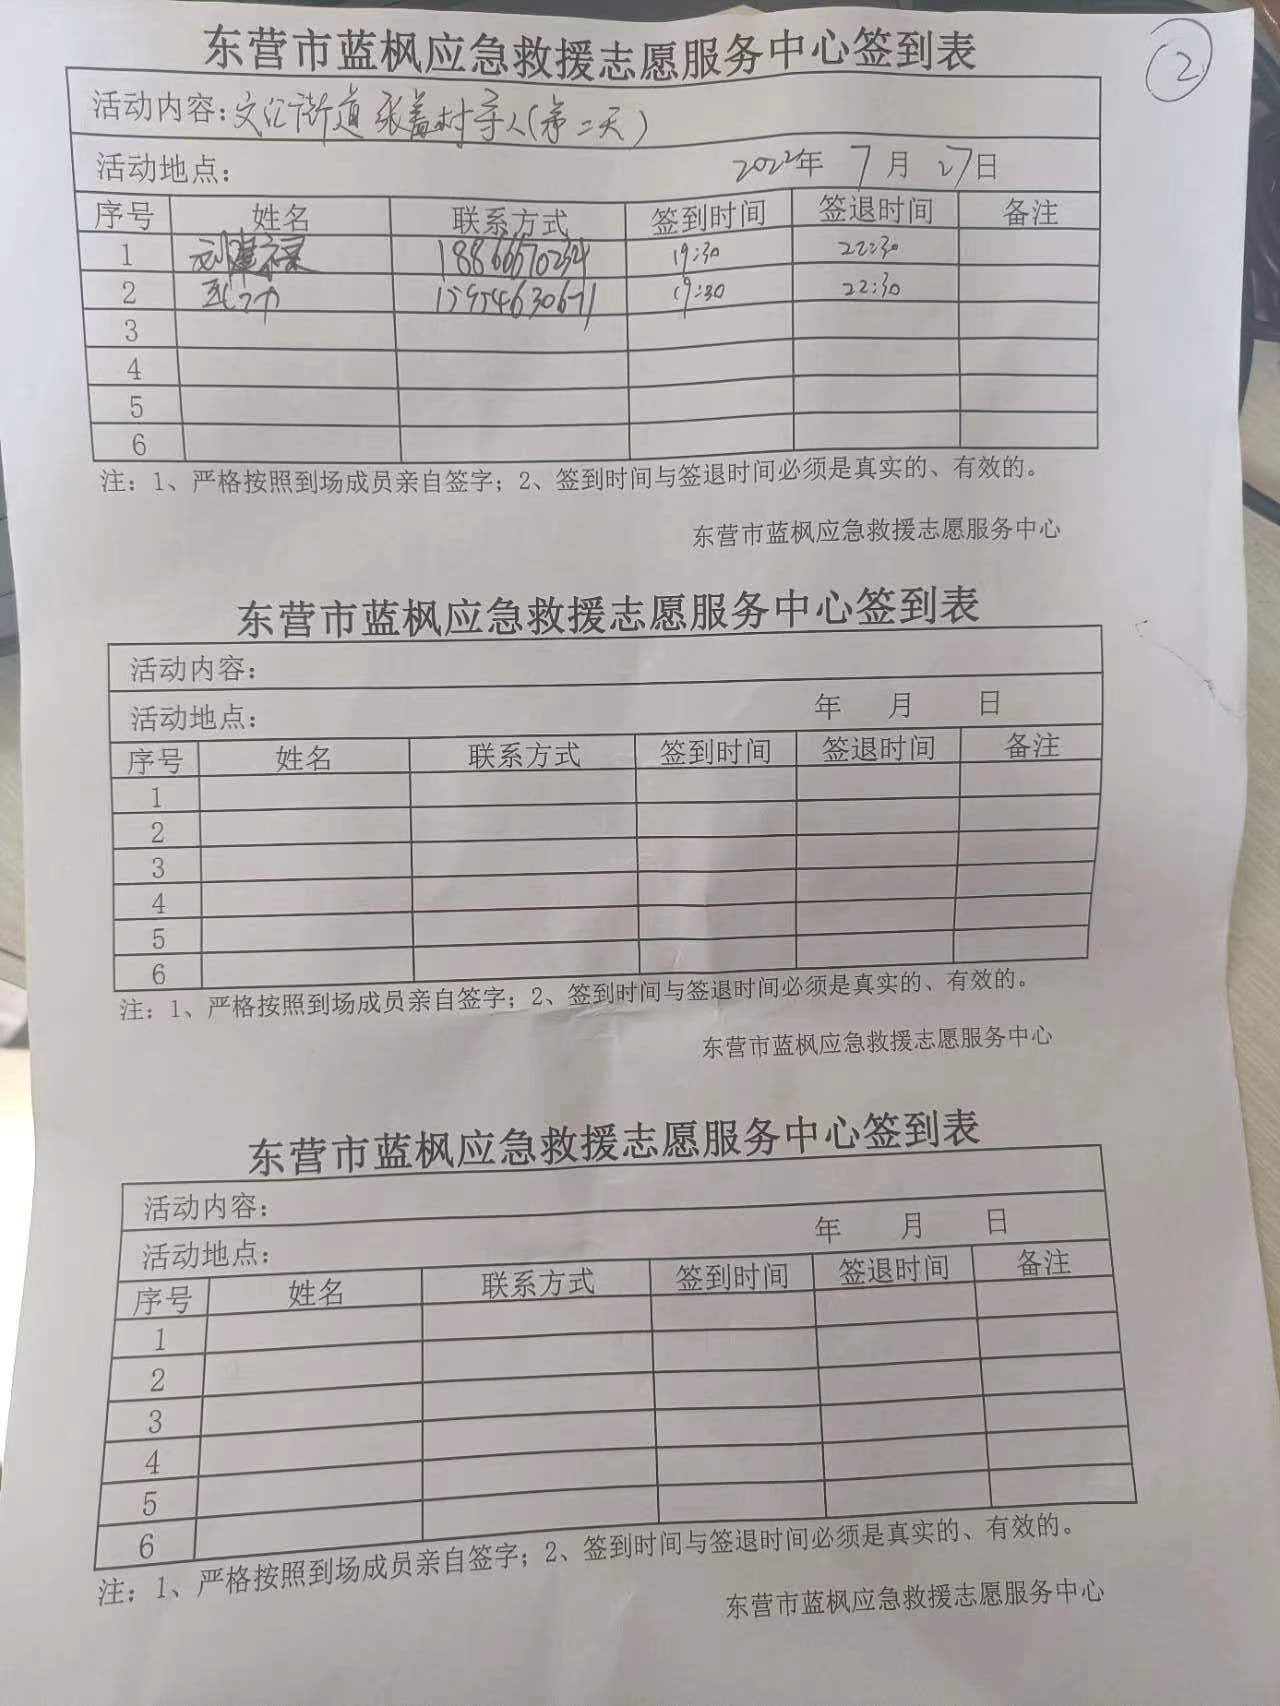 ②
东营市蓝枫应急救援志愿服务中心签到表
活动内容:文汇街道张盖村寻人(第二天)
活动地点: 2022年 7月 27日
序号 姓名 联系方式 签到时间 签退时间 备注
1 刘建禄 18866670234 19:30 22:30
2 15954630671 19:30 22:30
3
4
5
6
注:1、严格按照到场成员亲自签字;2、签到时间与签退时间必须是真实的、有效的。
东营市蓝枫应急救援志愿服务中心
东营市蓝枫应急救援志愿服务中心签到表
活动内容:
活动地点: 年 月 日
序号 姓名 联系方式 签到时间 签退时间 备注
1
2
3
4
5
6
注:1、严格按照到场成员亲自签字;2、签到时间与签退时间必须是真实的、有效的。
东营市蓝枫应急救援志愿服务中心
东营市蓝枫应急救援志愿服务中心签到表
活动内容:
活动地点: 年 月 日
序号 姓名 联系方式 签到时间 签退时间 备注
1
2
3
4
5
6
注:1、严格按照到场成员亲自签字;2、签到时间与签退时间必须是真实的、有效的。
东营市蓝枫应急救援志愿服务中心